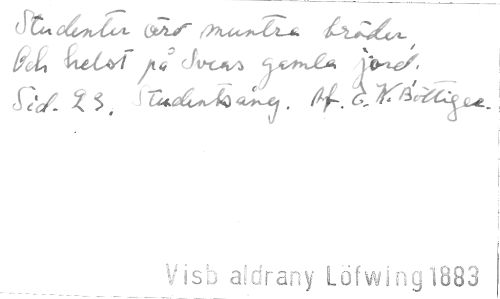 Studenter äro muntra bröder,
Och helst på Sveas gamla jord.
Sid. 23. Studentsång. Af. C. W. Böttiger.
Visb aldrany Löfwing 1883